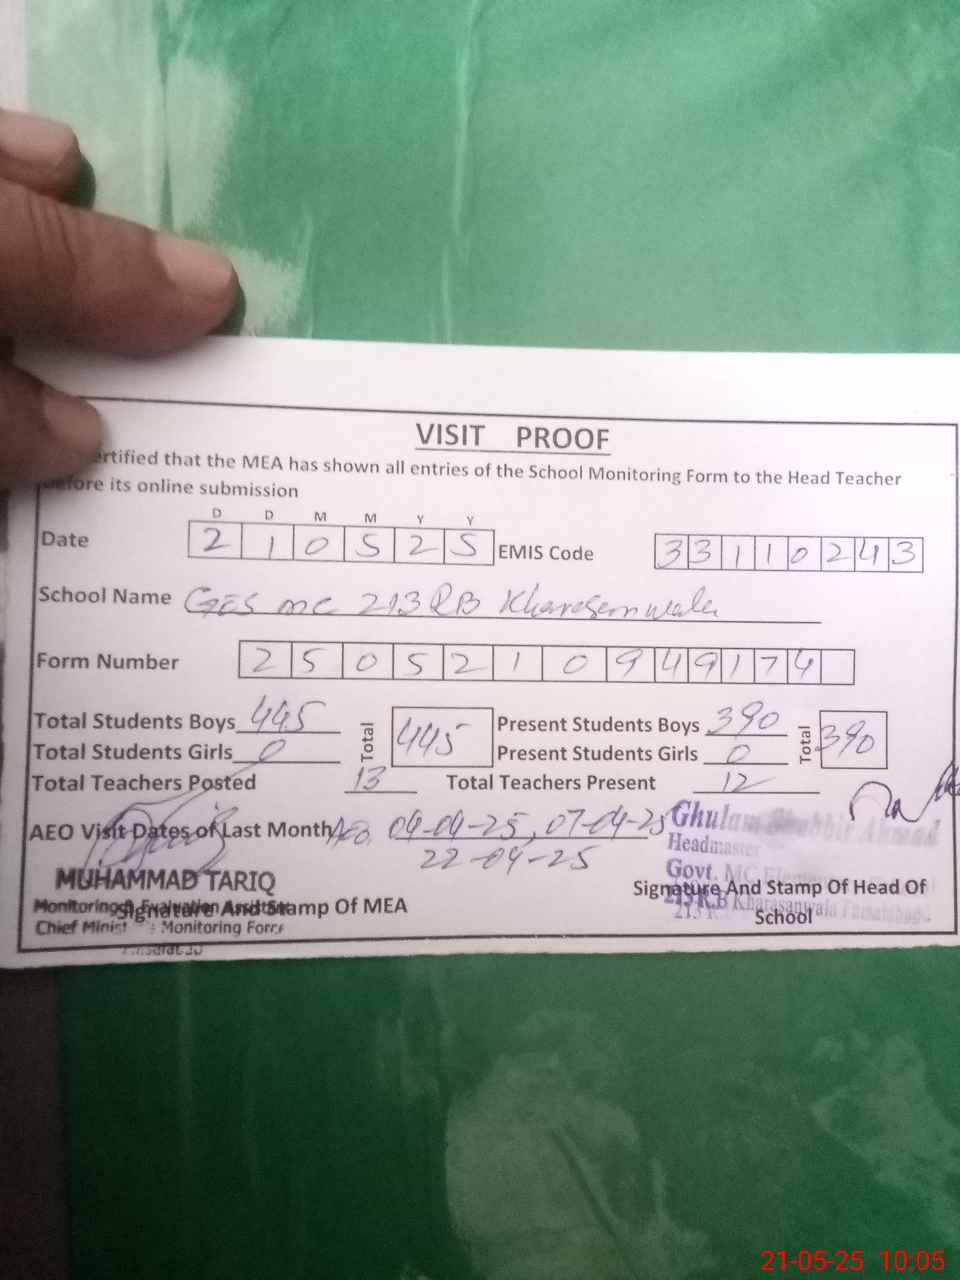 VISIT PROOF
ertified that the MEA has shown all entries of the School Monitoring Form to the Head Teacher
before its online submission
D D M M Y Y
Date 2 1 0 5 2 5 EMIS Code 3 3 1 1 0 2 4 3
School Name GES MC 213 RB Kharasanwala
Form Number 2 5 0 5 2 1 0 9 4 9 1 7 4
Total Students Boys 445 Total 445 Present Students Boys 390 Total 390
Total Students Girls 0 Present Students Girls 0
Total Teachers Posted 13 Total Teachers Present 12
AEO Visit Dates of Last Month AEO 04-04-25, 07-04-25
22-04-25
Ghulam Shabbir Ahmad
Headmaster
Govt. MC
213 R.B Kharasanwala
MUHAMMAD TARIQ
Monitoring & Evaluation Assistant
Signature And Stamp Of MEA
Chief Minist Monitoring Force
Signature And Stamp Of Head Of
School
21-05-25 10:05